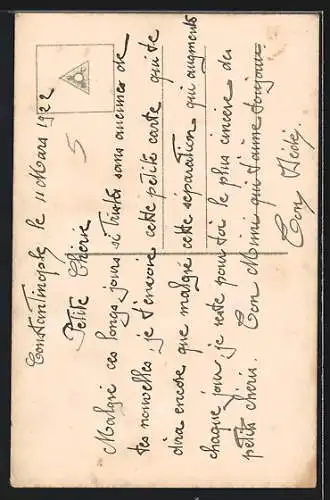 Constantinople le 11 Mars 1922
5
Petite Chérie
Malgré ces longs jours si tristes sans aucunes de
tes nouvelles, je t'envoie cette petite carte qui te
dira encore que malgré cette séparation qui augmente
chaque jour, je reste pour toi le plus sincère des
petit chéri. Ton Mimi qui t'aime toujours
Ton